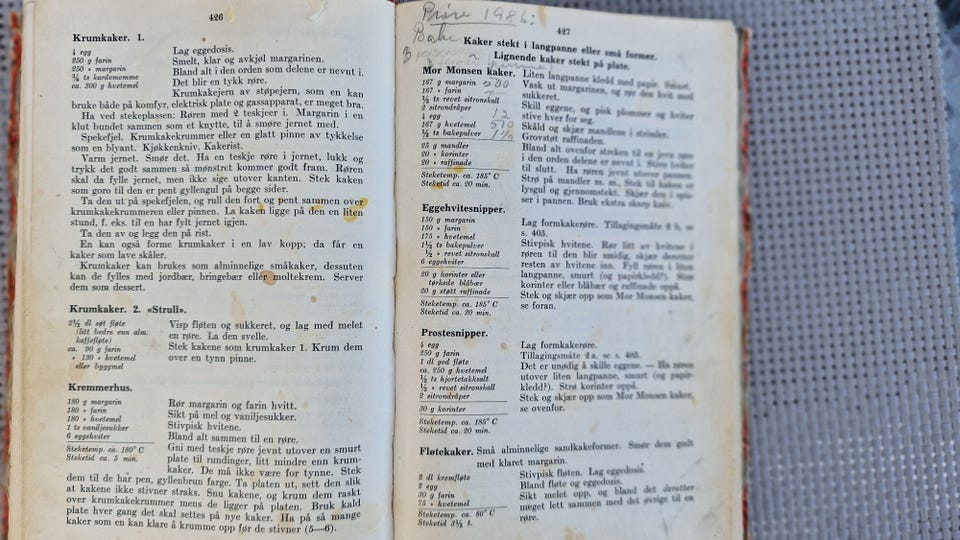 426
Krumkaker. 1.
4 egg
250 g farin
250 » margarin
¾ ts kardemomme
ca. 300 g hvetemel
Lag eggedosis.
Smelt, klar og avkjøl margarinen.
Bland alt i den orden som delene er nevnt i.
Det blir en tykk røre.
Krumkakejern av støpejern, som en kan
bruke både på komfyr, elektrisk plate og gassapparat, er meget bra.
Ha ved stekeplassen: Røren med 2 teskjeer i. Margarin i en
klut bundet sammen som et knytte, til å smøre jernet med.
Spekefjel. Krumkakekrummer eller en glatt pinne av tykkelse
som en blyant. Kjøkkenkniv. Kakerist.
Varm jernet. Smør det. Ha en teskje røre i jernet, lukk og
trykk det godt sammen så mønstret kommer godt fram. Røren
skal da fylle jernet, men ikke sige utover kanten. Stek kaken
som goro til den er pent gyllengul på begge sider.
Ta den ut på spekefjelen, og rull den fort og pent sammen over
krumkakekrummeren eller pinnen. La kaken ligge på den en liten
stund, f. eks. til en har fylt jernet igjen.
Ta den av og legg den på rist.
En kan også forme krumkaker i en lav kopp; da får en
kaker som lave skåler.
Krumkaker kan brukes som alminnelige småkaker, dessuten
kan de fylles med jordbær, bringebær eller moltekrem. Server
dem som dessert.
Krumkaker. 2. «Strull».
2½ dl søt fløte
(litt bedre enn alm.
kaffefløte)
ca. 90 g farin
» 130 » hvetemel
eller byggmel
Visp fløten og sukkeret, og lag med melet
en røre. La den svelle.
Stek kakene som krumkaker 1. Krum dem
over en tynn pinne.
Kremmerhus.
180 g margarin
180 » farin
180 » hvetemel
1 ts vaniljesukker
6 eggehviter
Steketemp. ca. 180° C
Steketid ca. 5 min.
Rør margarin og farin hvitt.
Sikt på mel og vaniljesukker.
Stivpisk hvitene.
Bland alt sammen til en røre.
Gni med teskje røre jevnt utover en smurt
plate til rundinger, litt mindre enn krum-
kaker. De må ikke være for tynne. Stek
dem til de har pen, gyllenbrun farge. Ta platen ut, sett den slik
at kakene ikke stivner straks. Snu kakene, og krum dem raskt
over krumkakekrummer mens de ligger på platen. Bruk kald
plate hver gang det skal settes på nye kaker. Ha på så mange
kaker som en kan klare å krumme opp før de stivner (5—6).
Prøve 1986:
427
Kaker stekt i langpanne eller små former.
Lignende kaker stekt på plate.
Mor Monsen kaker.
167 g margarin 500
167 » farin
½ ts revet sitronskall
2 sitrondråper
4 egg 12
167 g hvetemel 500
½ ts bakepulver 1½
25 g mandler
20 » korinter
20 » raffinade
Steketemp. ca. 185° C
Steketid ca. 20 min.
Liten langpanne kledd med papir. Smurt.
Vask ut margarinen, og rør den hvit med
sukkeret.
Skill eggene, og pisk plommer og hviter
stive hver for seg.
Skåld og skjær mandlene i strimler.
Grovstøt raffinaden.
Bland alt ovenfor streken til en jevn røre
i den orden delene er nevnt i. Stive hvitene
til slutt. Ha røren jevnt utover pannen.
Strø på mandler m. m. Stek til kaken er
lysgul og gjennomstekt. Skjær den i snip-
ser i pannen. Bruk ekstra skarp kniv.
Eggehvitesnipper.
150 g margarin
150 » farin
175 » hvetemel
1½ ts bakepulver
½ » revet sitronskall
6 eggehviter
20 g korinter eller
tørkede blåbær
20 g støtt raffinade
Steketemp. ca. 185° C
Steketid ca. 20 min.
Lag formkakerøre. Tillagingsmåte 2 b, se
s. 405.
Stivpisk hvitene. Rør litt av hvitene i
røren til den blir smidig, skjær deretter
resten av hvitene inn. Fyll røren i liten
langpanne, smurt (og papirkledd?). Strø
korinter eller blåbær og raffinade oppå.
Stek og skjær opp som Mor Monsen kaker,
se foran.
Prostesnipper.
4 egg
250 g farin
1 dl god fløte
ca. 250 g hvetemel
½ ts hjortetakksalt
½ » revet sitronskall
2 sitrondråper
20 g korinter
Steketemp. ca. 185° C
Steketid ca. 20 min.
Lag formkakerøre.
Tillagingsmåte 2 a, se s. 405.
Det er unødig å skille eggene. — Ha røren
utover liten langpanne, smurt (og papir-
kledd?). Strø korinter oppå.
Stek og skjær opp som Mor Monsen kaker,
se ovenfor.
Fløtekaker. Små alminnelige sandkakeformer. Smør dem godt
med klaret margarin.
2 dl kremfløte
2 egg
30 g farin
75 » hvetemel
Steketemp. ca. 90° C
Steketid 3½ t.
Stivpisk fløten. Lag eggedosis.
Bland fløte og eggedosis.
Sikt melet opp, og bland det deretter
meget lett sammen med det øvrige til en
røre.